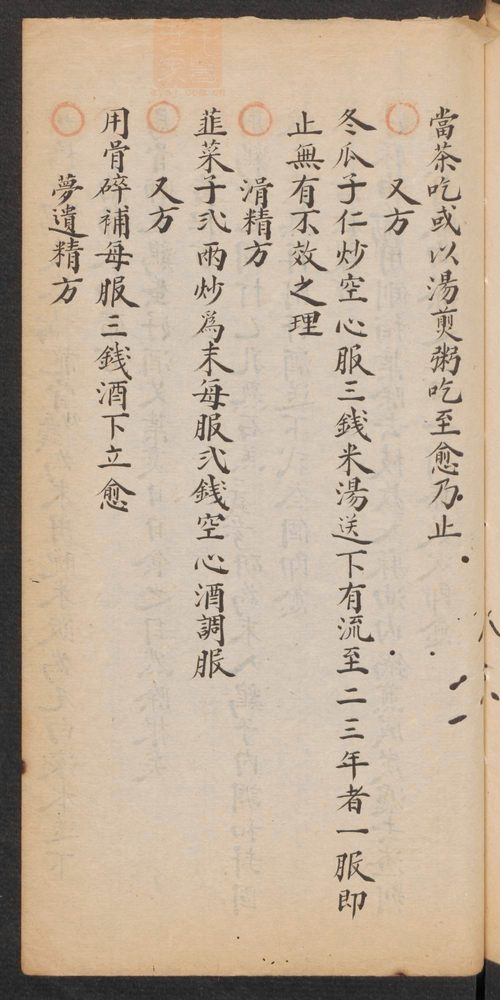 當茶吃或以湯煎粥吃至愈乃止
又方
冬瓜子仁炒空心服三錢米湯送下有流至二三年者一服即
止無有不效之理
滑精方
韮菜子弍兩炒為末每服弍錢空心酒調服
又方
用骨碎補每服三錢酒下立愈
夢遺精方